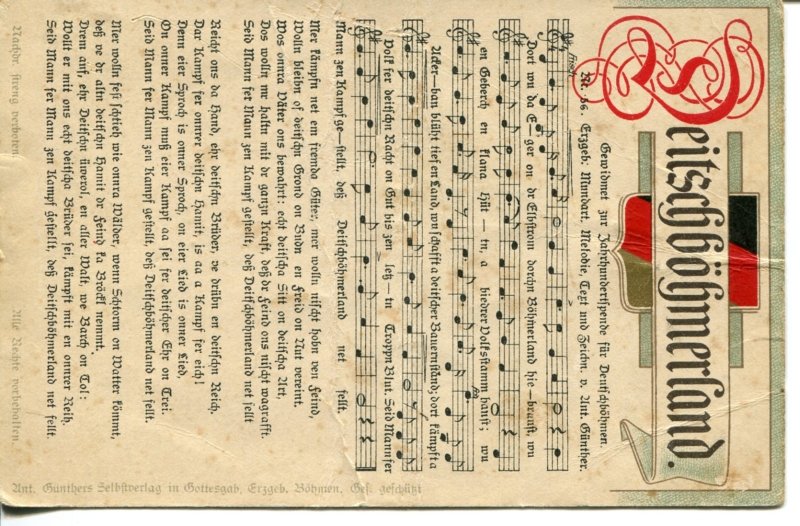 Deitschböhmerland.
Gewidmet zur Jahrhundertspende für Deutschböhmen.
Nr. 36. Erzgeb. Mundart. Melodie, Text und Zeichn. v. Ant. Günther.
Frisch.
Dort wu da E=ger on dr Elbstrom dorchn Böhmerland hie=braust, wu
en Geberch en klana Hütt=tn a biedrer Volksstamm haust; wu
Acker=bau blüht tief en Land, wu schafft a deitscher Bauernständ; dort kämpft a
Volk fer deitschn Racht on Gut bis zen letz=tn Troppn Blut. Seid Mann fer
Mann zen Kampf ge=stellt, deß Deitschböhmerland net fellt.
Mer kämpfn net em fremda Güter, mer wolln nischt hobn ven Feind,
Wolln bleibn of deitschn Grond on Budn en Freid on Nut vereint.
Wos onnra Väter ons bewahrt: echt deitscha Sitt on deitscha Art,
Dos wolln mr haltn mit dr ganzn Kraft, deß dr Feind ons nischt wografft.
Seid Mann fer Mann zen Kampf gestellt, deß Deitschböhmerland net fellt
Reicht ons da Hand, ehr deitschn Brüder, ve drübn en deitschn Reich,
Dar Kampf fer onnrer deitschn Hamit, is aa a Kampf fer eich!
Denn eier Sproch is onner Sproch, on eier Lied is onner Lied,
On onner Kampf muß eier Kampf aa sei fer deitscher Ehr on Trei.
Seid Mann fer Mann zen Kampf gestellt, deß Deitschböhmerland net fellt.
Mer wolln feß schtieh wie onnra Wälder, wenn Schtorm on Watter kömmt,
deß ve dr altn deitschn Hamit dr Feind ka Bröckl nemmt.
Drem auf, ehr Deitschn üwerol, en aller Walt, ve Barch on Tol:
Wollt er mit ons echt deitscha Brüder sei, kämpft mit en onnrer Reih.
Seid Mann fer Mann zen Kampf gestellt, deß Deitschböhmerland net fellt.
Nachdr. streng verboten. Alle Rechte vorbehalten.
Ant. Günthers Selbstverlag in Gottesgab, Erzgeb. Böhmen. Ges. geschützt